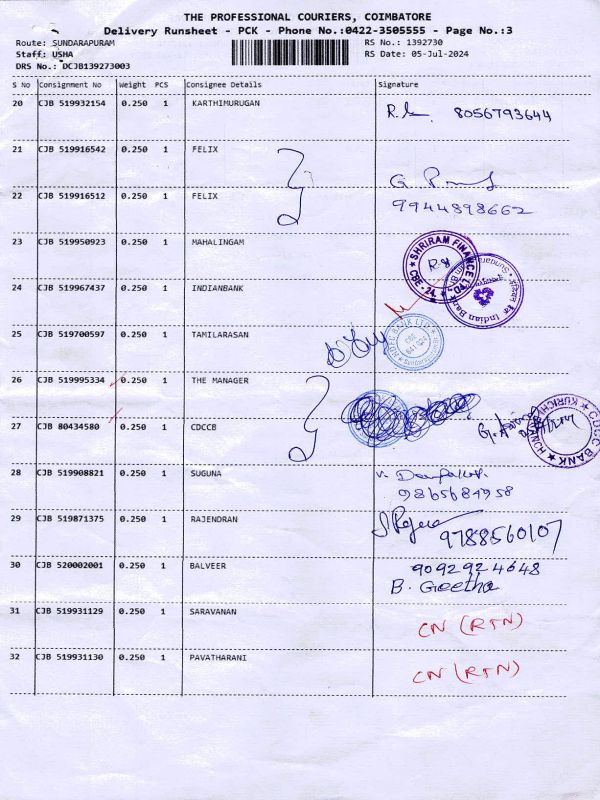 THE PROFESSIONAL COURIERS, COIMBATORE
Delivery Runsheet - PCK - Phone No.:0422-3505555 - Page No.:3
Route: SUNDARAPURAM RS No.: 1392730
Staff: USHA RS Date: 05-Jul-2024
DRS No.: DCJB139273003
S No Consignment No Weight PCS Consignee Details Signature
20 CJB 519932154 0.250 1 KARTHIMURUGAN 8056793644
21 CJB 519916542 0.250 1 FELIX
22 CJB 519916512 0.250 1 FELIX
9944898662
23 CJB 519950923 0.250 1 MAHALINGAM
SHRIRAM FINANCE LTD CBE-24
24 CJB 519967437 0.250 1 INDIANBANK
Indian Bank
25 CJB 519700597 0.250 1 TAMILARASAN
26 CJB 519995334 0.250 1 THE MANAGER
27 CJB 80434580 0.250 1 CDCCB
CDCC BANK KURICHI BRANCH
28 CJB 519908821 0.250 1 SUGUNA
9865684958
29 CJB 519871375 0.250 1 RAJENDRAN
9788560107
30 CJB 520002001 0.250 1 BALVEER 9092924648
B. Geetha
31 CJB 519931129 0.250 1 SARAVANAN CN (RTN)
32 CJB 519931130 0.250 1 PAVATHARANI CN (RTN)